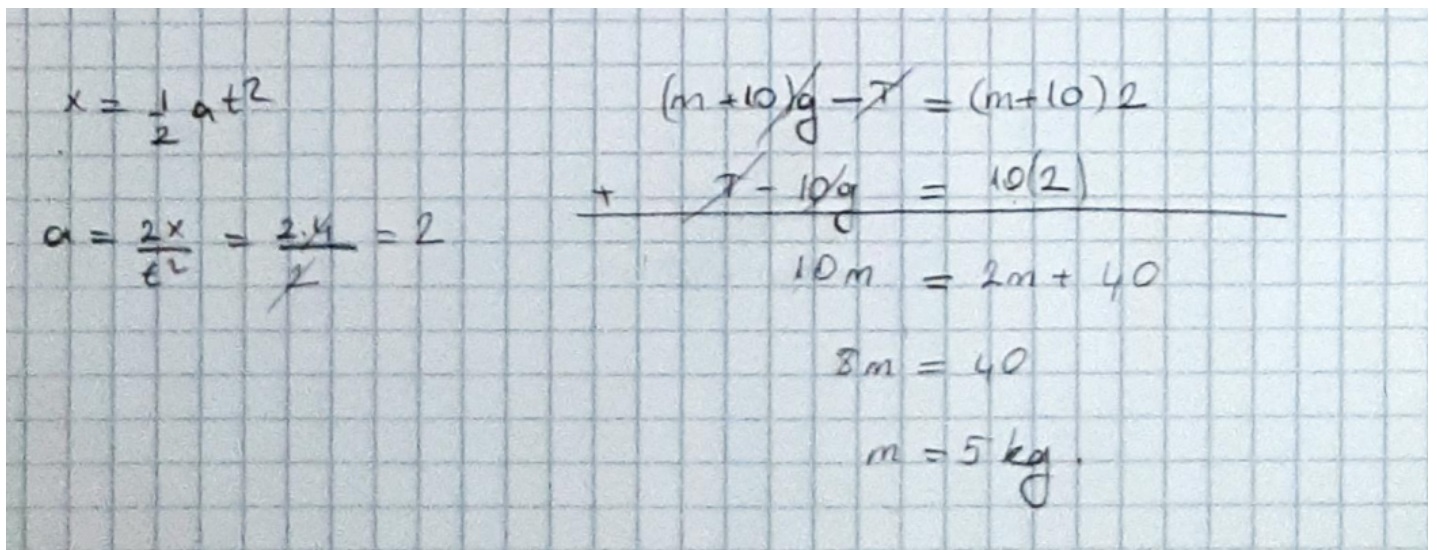 x = 1/2 a t²
a = 2x/t² = 2.4/2 = 2
(m+10)g - T = (m+10)2
+ T - 10g = 10(2)
10m = 2m + 40
8m = 40
m = 5 kg.